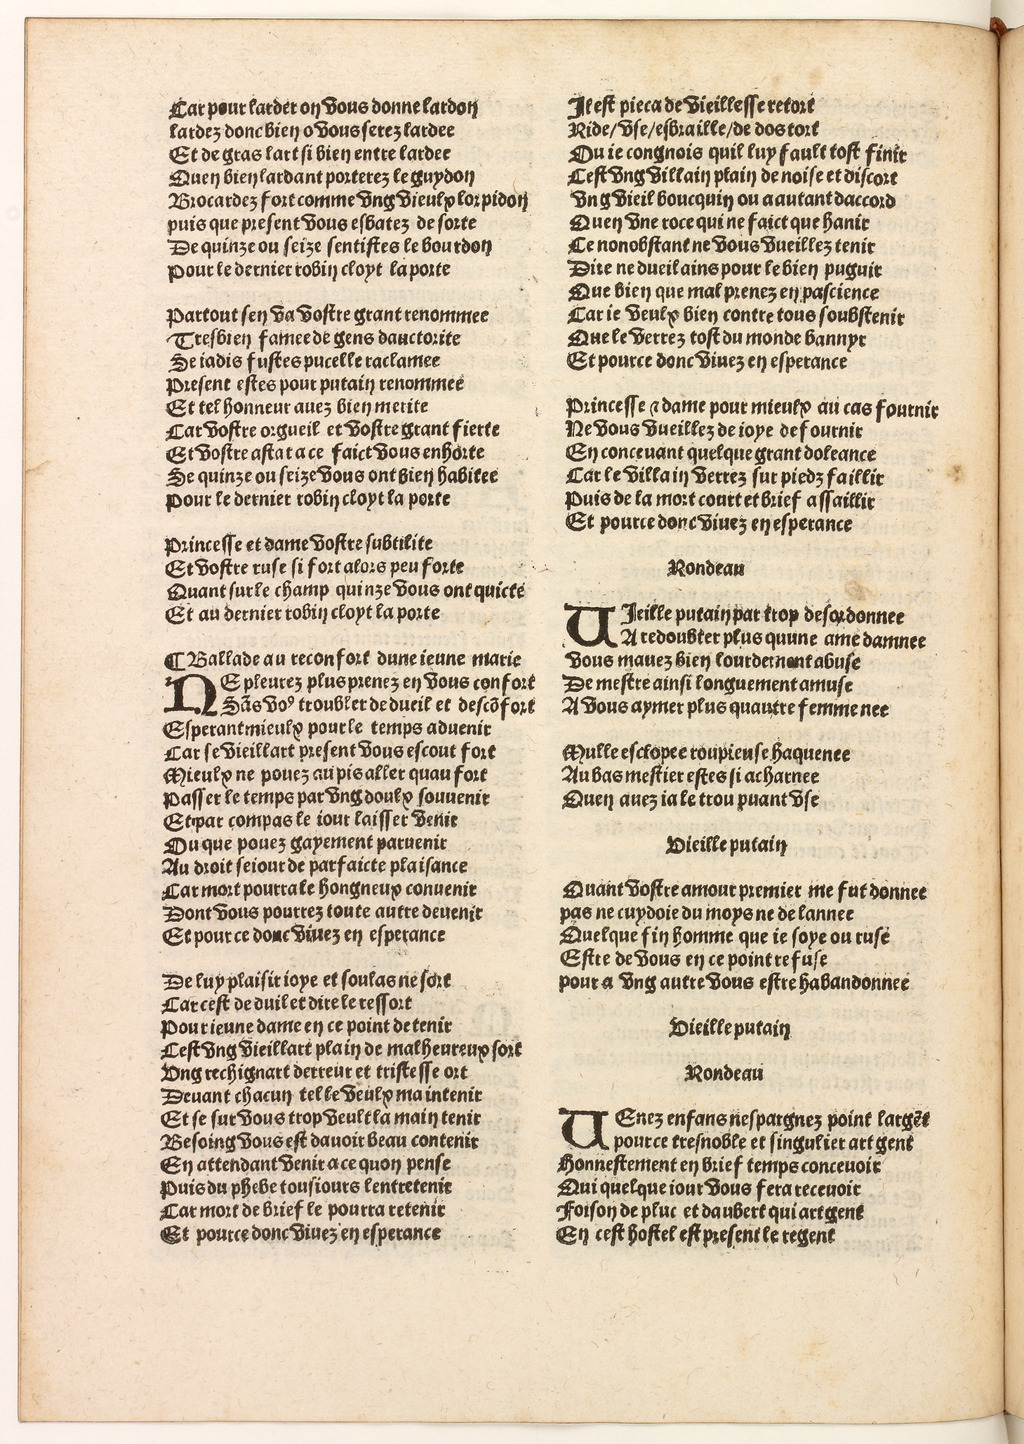 Car pour larder on vous donne lardon
lardez donc bien o vous serez lardee
Et de gras lart si bien entre lardee
Quen bien lardant porterez le guydon
Brocardez fort comme vng vieulx lorpidon
puis que present vous esbatez de sorte
De quinze ou seize sentistes le bourdon
Pour le dernier robin cloyt la porte
Partout sen va vostre grant renommee
Tresbien famee de gens dauctorite
Se iadis fustes pucelle raclamee
Present estes pour putain renommee
Et tel honneur auez bien merite
Car vostre orgueil et vostre grant fierte
Et vostre astat a ce faict vous enhorte
Se quinze ou seize vous ont bien habitee
Pour le dernier robin cloyt la porte
Princesse et dame vostre subtilite
Et vostre ruse si fort alors peu forte
Quant sur le champ quinze vous ont quicte
Et au dernier robin cloyt la porte
¶ Ballade au reconfort dune ieune marie
NE pleurez plus prenez en vous confort
Sãs voꝰ troubler de dueil et descõfort
Esperant mieulx pour le temps aduenir
Car se vieillart present vous escout fort
Mieulx ne pouez au pis aller quau fort
Passer le temps par vng doulx souuenir
Et par compas le iour laisser venir
Ou que pouez gayement paruenir
Au droit seiour de parfaicte plaisance
Car mort pourra le hongneux conuenir
Dont vous pourrez toute autre deuenir
Et pour ce donc viuez en esperance
De luy plaisir ioye et soulas ne sort
Car cest de duil et dire le ressort
Pour ieune dame en ce point de tenir
Cest vng vieillart plain de malheureux sort
Vng rechignart derreur et tristesse ort
Deuant chacun tel le veulx maintenir
Et se sur vous trop veult la main tenir
Besoing vous est dauoir beau contenir
En attendant venir a ce quon pense
Puis du phebe tousiours lentretenir
Car mort de brief le pourra retenir
Et pource donc viuez en esperance
Il est pieca de vieillesse retort
Ride/vse/esbraille/de dos tort
Ou ie congnois quil luy fault tost finir
Cest vng villain plain de noise et discort
vng vieil boucquin ou a autant daccord
Quen vne roce qui ne faict que hanir
Ce nonobstant ne vous vueillez tenir
Dire ne dueil ains pour le bien puguir
Que bien que mal prenez en pascience
Car ie veulx bien contre tous soubstenir
Que le verrez tost du monde bannyr
Et pource donc viuez en esperance
Princesse ⁊ dame pour mieulx au cas fournir
Ne vous vueillez de ioye defournir
En conceuant quelque grant doleance
Car le villain verrez sur piedz faillir
Puis de la mort court et brief assaillir
Et pource donc viuez en esperance
Rondeau
VIeille putain par trop desordonnee
A redoubter plus quune ame damnee
vous mauez bien lourdement abuse
De mestre ainsi longuement amuse
A vous aymer plus quautre femme nee
Mulle esclopee roupieuse haquenee
Au bas mestier estes si acharnee
Quen auez ia le trou puant vse
Vieille putain
Quant vostre amour premier me fut donnee
pas ne cuydoie du moys ne de lannee
Quelque fin homme que ie soye ou ruse
Estre de vous en ce point refuse
pour a vng autre vous estre habandonnee
Vieille putain
Rondeau
VEnez enfans nespargnez point largẽt
pour ce tresnoble et singulier art gent
Honnestement en brief temps conceuoir
Qui quelque iour vous fera receuoir
Foison de pluc et daubert qui art gent
En cest hostel est present le regent